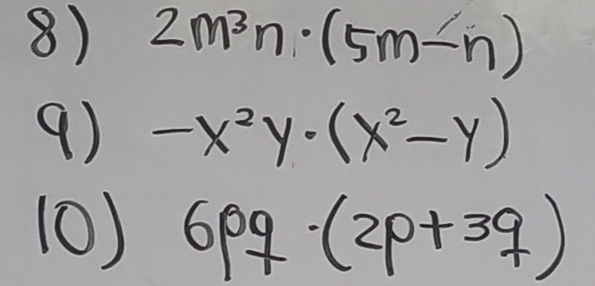 8) 2m³n·(5m−n)
9) −x²y·(x²−y)
10) 6pq·(2p+3q)